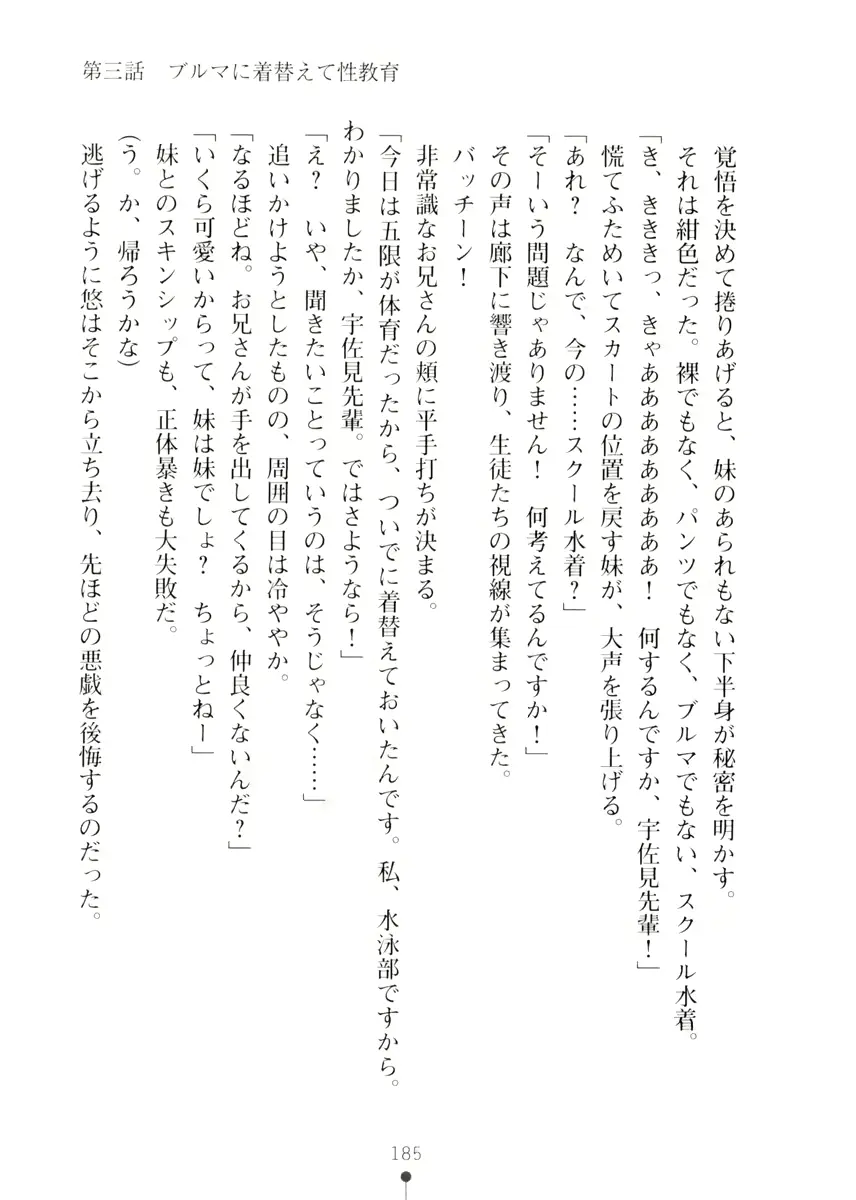 第三話　ブルマに着替えて性教育
覚悟を決めて捲りあげると、妹のあられもない下半身が秘密を明かす。
それは紺色だった。裸でもなく、パンツでもなく、ブルマでもない、スクール水着。
「き、きききっ、きゃあああああああああ！　何するんですか、宇佐見先輩！」
慌てふためいてスカートの位置を戻す妹が、大声を張り上げる。
「あれ？　なんで、今の……スクール水着？」
「そーいう問題じゃありません！　何考えてるんですか！」
その声は廊下に響き渡り、生徒たちの視線が集まってきた。
バッチーン！
非常識なお兄さんの頬に平手打ちが決まる。
「今日は五限が体育だったから、ついでに着替えておいたんです。私、水泳部ですから。
わかりましたか、宇佐見先輩。ではさようなら！」
「え？　いや、聞きたいことっていうのは、そうじゃなく……」
追いかけようとしたものの、周囲の目は冷ややか。
「なるほどね。お兄さんが手を出してくるから、仲良くないんだ？」
「いくら可愛いからって、妹は妹でしょ？　ちょっとねー」
妹とのスキンシップも、正体暴きも大失敗だ。
(う。か、帰ろうかな)
逃げるように悠はそこから立ち去り、先ほどの悪戯を後悔するのだった。
185